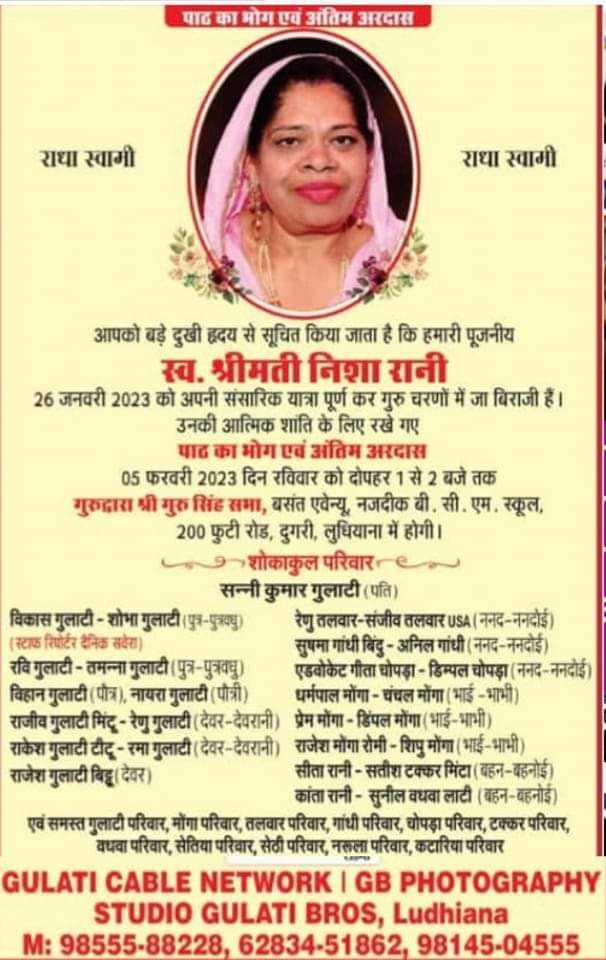 पाठ का भोग एवं अंतिम अरदास
राधा स्वामी
राधा स्वामी
आपको बड़े दुखी हृदय से सूचित किया जाता है कि हमारी पूजनीय
स्व. श्रीमती निशा रानी
26 जनवरी 2023 को अपनी संसारिक यात्रा पूर्ण कर गुरु चरणों में जा बिराजी हैं।
उनकी आत्मिक शांति के लिए रखे गए
पाठ का भोग एवं अंतिम अरदास
05 फरवरी 2023 दिन रविवार को दोपहर 1 से 2 बजे तक
गुरुद्वारा श्री गुरु सिंह सभा, बसंत एवेन्यू, नजदीक बी. सी. एम. स्कूल,
200 फुटी रोड, दुगरी, लुधियाना में होगी।
शोकाकुल परिवार
सन्नी कुमार गुलाटी (पति)
विकास गुलाटी - शोभा गुलाटी (पुत्र-पुत्रवधु)
(स्टाफ रिपोर्टर दैनिक सवेरा)
रवि गुलाटी - तमन्ना गुलाटी (पुत्र-पुत्रवधु)
विहान गुलाटी (पौत्र), नायरा गुलाटी (पौत्री)
राजीव गुलाटी मिंटू - रेणु गुलाटी (देवर-देवरानी)
राकेश गुलाटी टीटू - रमा गुलाटी (देवर-देवरानी)
राजेश गुलाटी बिट्टू (देवर)
रेणु तलवार-संजीव तलवार USA (ननद-ननदोई)
सुषमा गांधी बिंदु - अनिल गांधी (ननद-ननदोई)
एडवोकेट गीता चोपड़ा - डिम्पल चोपड़ा (ननद-ननदोई)
धर्मपाल मोंगा - चंचल मोंगा (भाई -भाभी)
प्रेम मोंगा - डिंपल मोंगा (भाई-भाभी)
राजेश मोंगा रोमी - शिपु मोंगा (भाई-भाभी)
सीता रानी - सतीश टक्कर मिंटा (बहन-बहनोई)
कांता रानी - सुनील वधवा लाटी (बहन-बहनोई)
एवं समस्त गुलाटी परिवार, मोंगा परिवार, तलवार परिवार, गांधी परिवार, चोपड़ा परिवार, टक्कर परिवार,
वधवा परिवार, सेतिया परिवार, सेठी परिवार, नरूला परिवार, कटारिया परिवार
GULATI CABLE NETWORK | GB PHOTOGRAPHY
STUDIO GULATI BROS, Ludhiana
M: 98555-88228, 62834-51862, 98145-04555